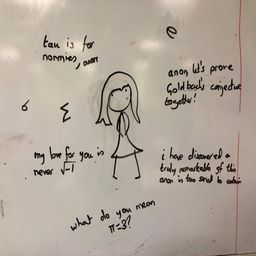 tau is for
normies, anon
e
anon let's prove
Goldbach's conjecture
together!
σ
Σ
my love for you is
never √-1
i have discovered a
truly remarkable gf this
anon is too small to contain
what do you mean
π=3?